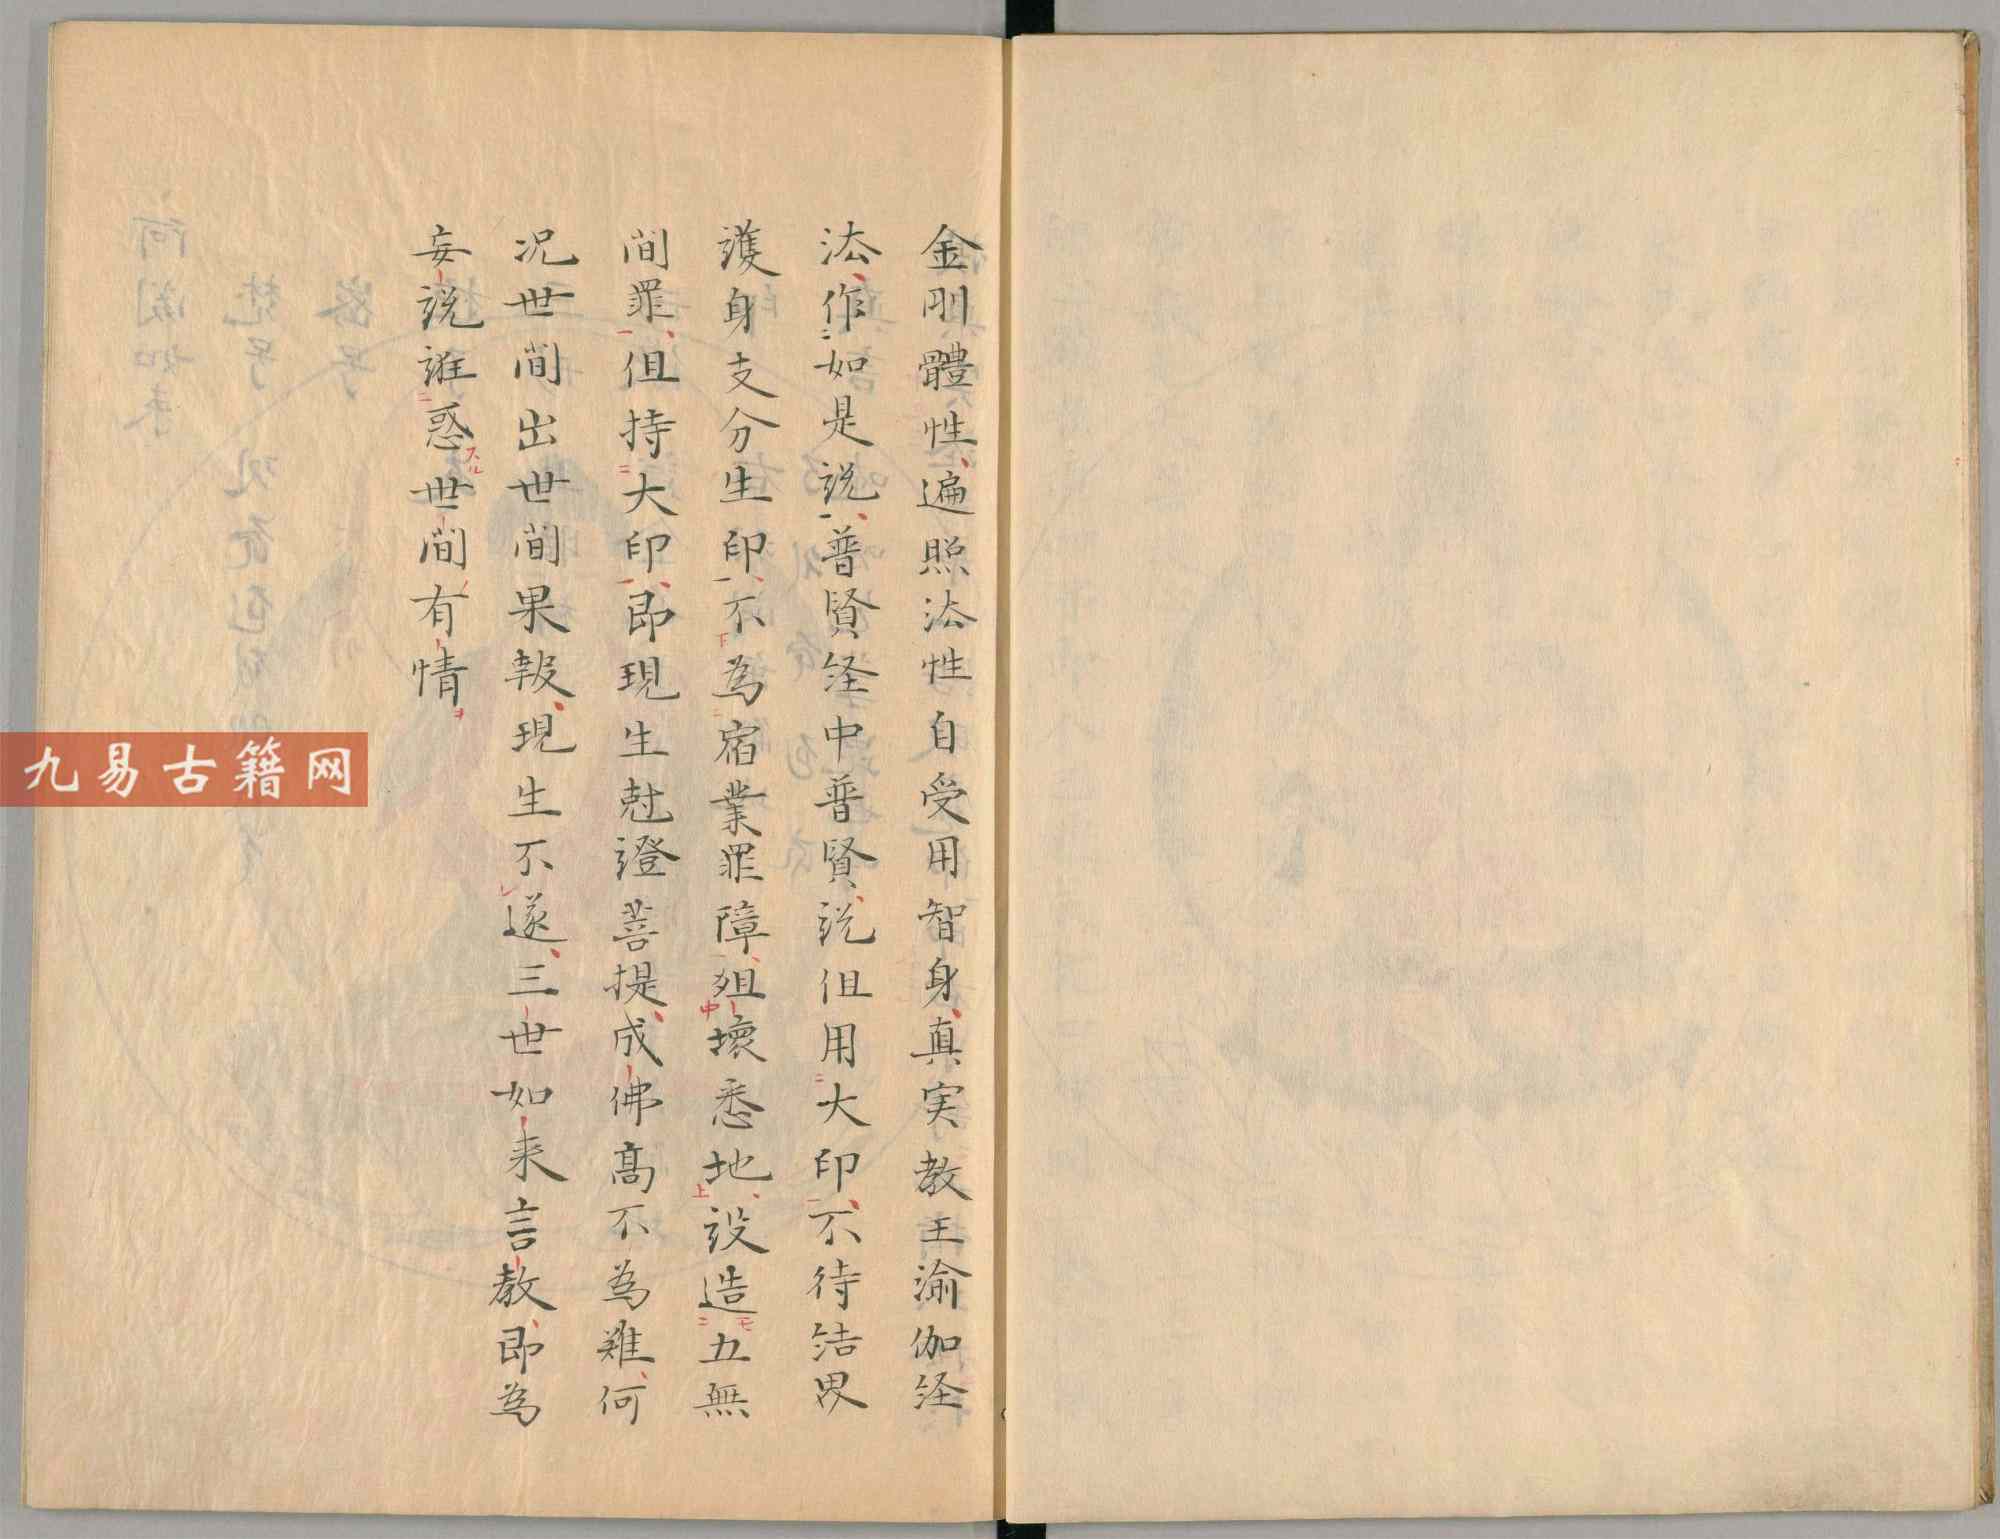 金剛體性遍照法性自受用智身真実教王瑜伽经
法作如是説普賢経中普賢説但用大印不待結界
護身支分生印不為宿業罪障殂壞悉地設造五無
間罪但持大印即現生尅證菩提成佛高不為難何
况世間出世間果報現生不遂三世如来言教即為
妄説誰惑世間有情
九易古籍网